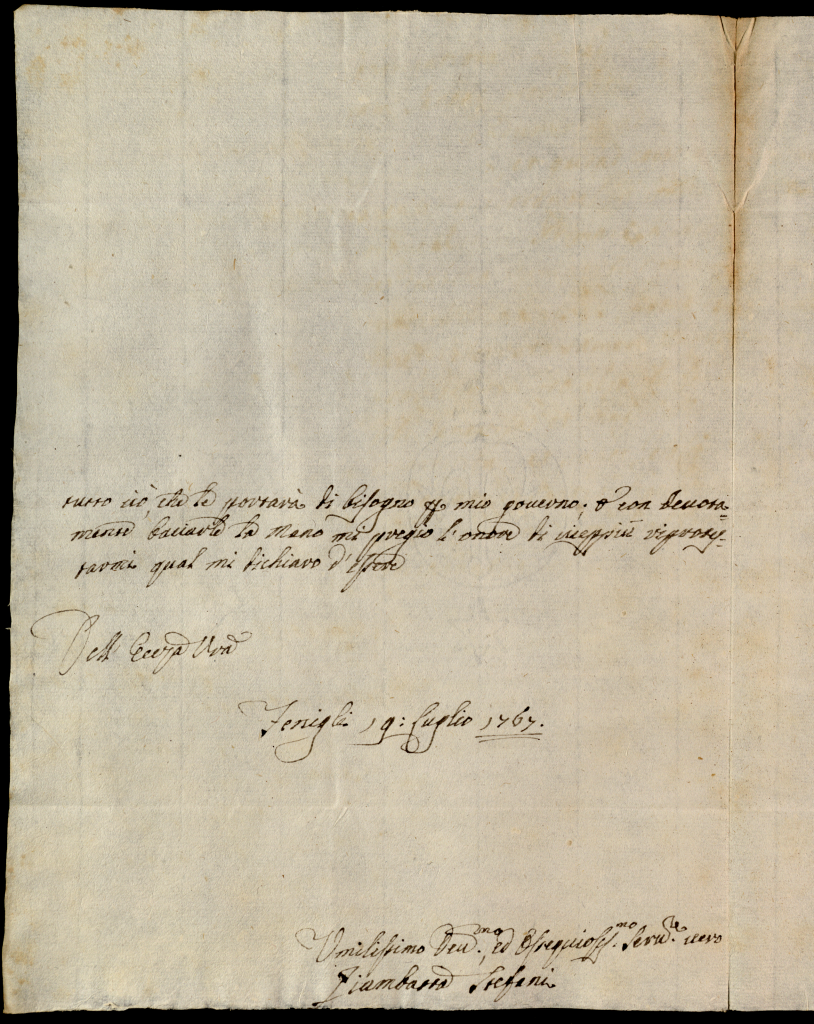 tutto ciò, che le portarà di bisogno p mio governo; e con devota=
mente baciarle la mano mi pregio l'onore di vieppiù riprotes=
tarmi qual mi dichiaro d'essere
Dell' Eccza Vra
Fenigli 19: Luglio 1767.
Umilissimo Deu.mo ed Ossequiosiss.mo Serud.re vero
Giambatta Stefani